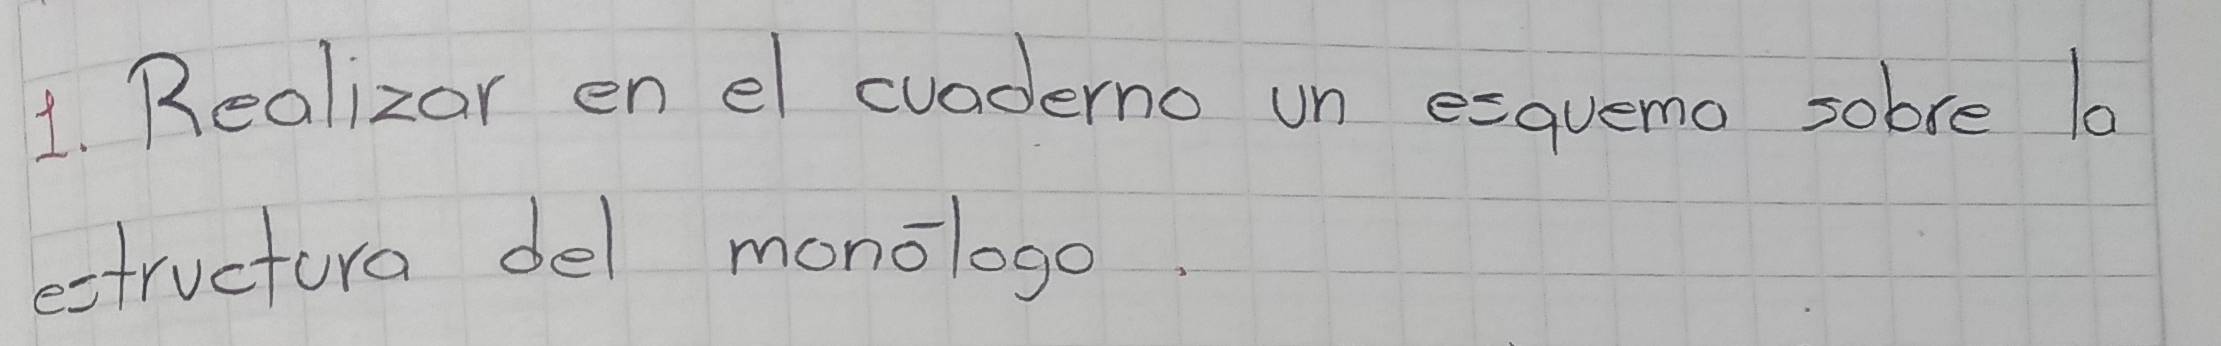 1. Realizar en el cuaderno un esquema sobre la
estructura del monólogo.